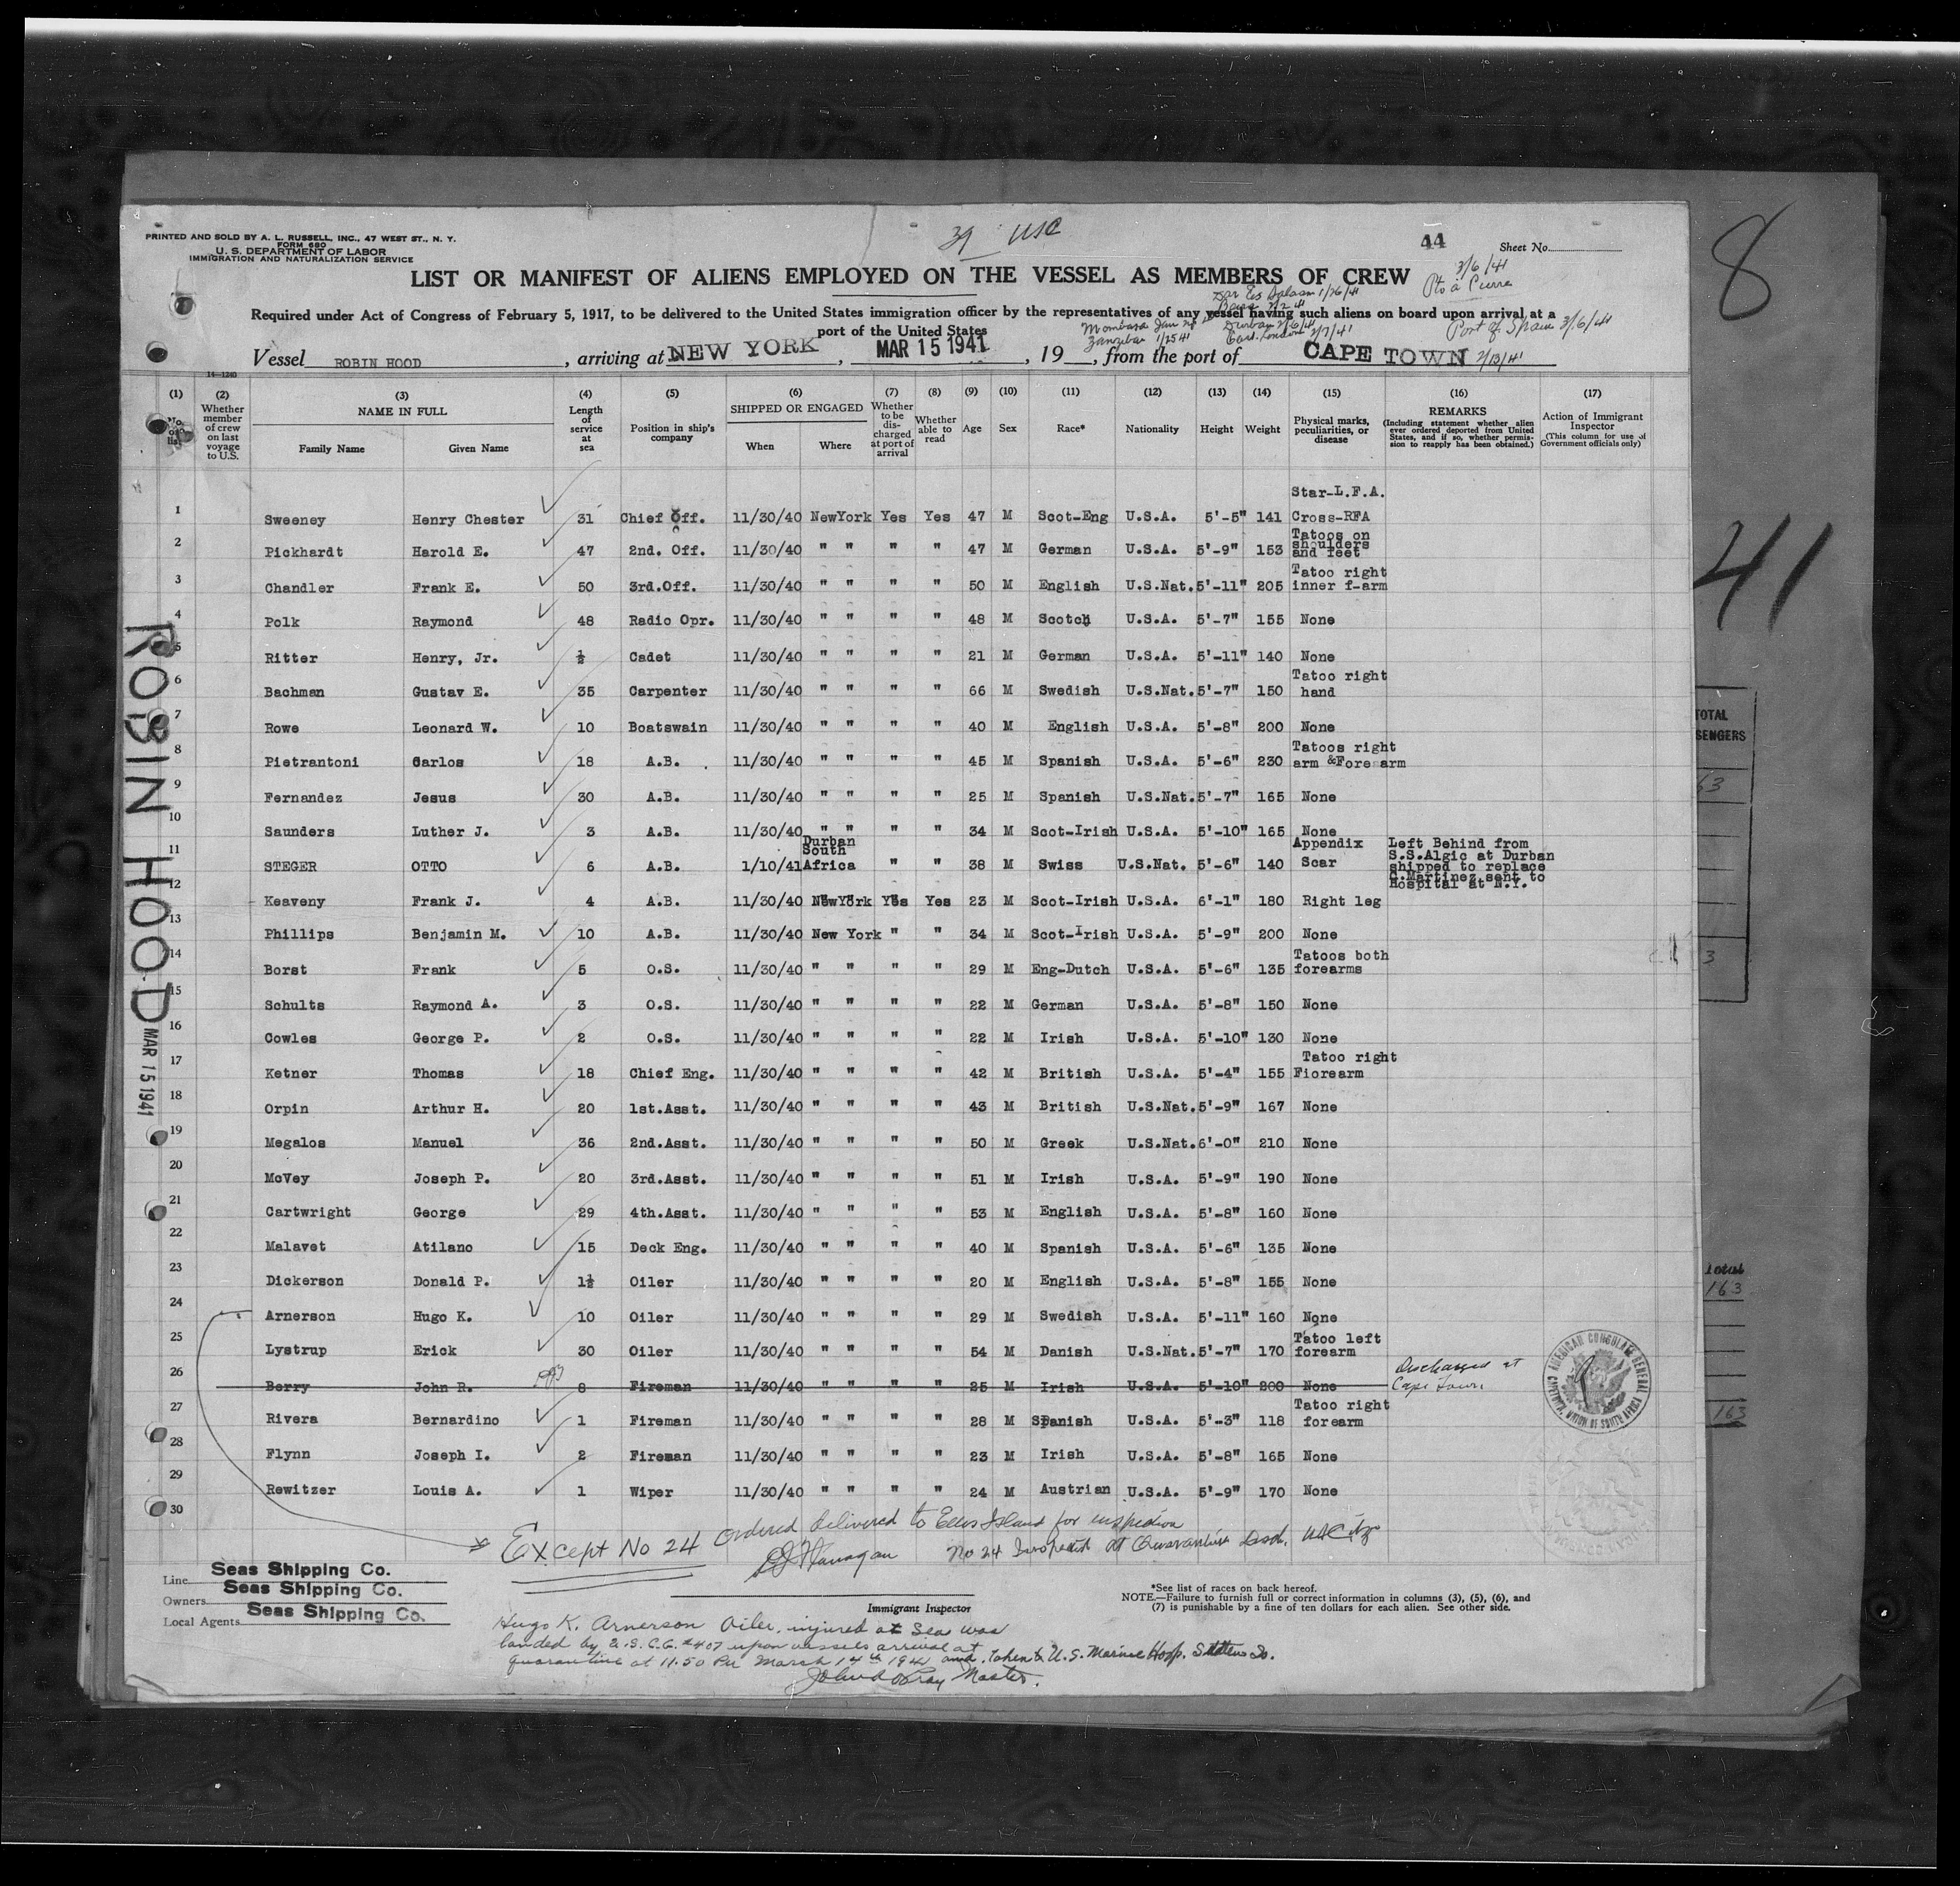 39 USC
PRINTED AND SOLD BY A. L. RUSSELL, INC., 47 WEST ST., N. Y.
FORM 680
U. S. DEPARTMENT OF LABOR
IMMIGRATION AND NATURALIZATION SERVICE
44
Sheet No.
8
41
LIST OR MANIFEST OF ALIENS EMPLOYED ON THE VESSEL AS MEMBERS OF CREW
3/6/41
Required under Act of Congress of February 5, 1917, to be delivered to the United States immigration officer by the representatives of any vessel having such aliens on board upon arrival at a
port of the United States
Dar Es Salaam 1/26/41
Durban 2/6/41
Mombasa Jan
Zanzibar 1/25 41
East London 2/7/41
Port of Spain 3/6/41
Vessel ROBIN HOOD, arriving at NEW YORK, MAR 15 1941, 19__, from the port of CAPE TOWN 2/13/41
14-1240
(1) (2) (3) (4) (5) (6) (7) (8) (9) (10) (11) (12) (13) (14) (15) (16) (17)
No. on list
Whether member of crew on last voyage to U.S.
NAME IN FULL
Family Name Given Name
Length of service at sea
Position in ship's company
SHIPPED OR ENGAGED
When Where
Whether to be discharged at port of arrival
Whether able to read
Age Sex Race* Nationality Height Weight
Physical marks, peculiarities, or disease
REMARKS
(Including statement whether alien ever ordered deported from United States, and if so, whether permission to reapply has been obtained.)
Action of Immigrant Inspector
(This column for use of Government officials only)
1 Sweeney Henry Chester 31 Chief Off. 11/30/40 NewYork Yes Yes 47 M Scot-Eng U.S.A. 5'-5" 141 Star-L.F.A. Cross-RFA
2 Pickhardt Harold E. 47 2nd. Off. 11/30/40 " " " " 47 M German U.S.A. 5'-9" 153 Tatoos on shoulders and feet
3 Chandler Frank E. 50 3rd.Off. 11/30/40 " " " " 50 M English U.S.Nat. 5'-11" 205 Tatoo right inner f-arm
4 Polk Raymond 48 Radio Opr. 11/30/40 " " " " 48 M Scotch U.S.A. 5'-7" 155 None
5 Ritter Henry, Jr. ½ Cadet 11/30/40 " " " " 21 M German U.S.A. 5'-11" 140 None
6 Bachman Gustav E. 35 Carpenter 11/30/40 " " " " 66 M Swedish U.S.Nat. 5'-7" 150 Tatoo right hand
7 Rowe Leonard W. 10 Boatswain 11/30/40 " " " " 40 M English U.S.A. 5'-8" 200 None
8 Pietrantoni Carlos 18 A.B. 11/30/40 " " " " 45 M Spanish U.S.A. 5'-6" 230 Tatoos right arm &Forearm
9 Fernandez Jesus 30 A.B. 11/30/40 " " " " 25 M Spanish U.S.Nat. 5'-7" 165 None
10 Saunders Luther J. 3 A.B. 11/30/40 " " " " 34 M Scot-Irish U.S.A. 5'-10" 165 None
11 STEGER OTTO 6 A.B. 1/10/41 Durban South Africa " " 38 M Swiss U.S.Nat. 5'-6" 140 Appendix Scar Left Behind from S.S.Algic at Durban shipped to replace G.Martinez sent to Hospital at N.Y.
12 Keaveny Frank J. 4 A.B. 11/30/40 NewYork Yes Yes 23 M Scot-Irish U.S.A. 6'-1" 180 Right leg
13 Phillips Benjamin M. 10 A.B. 11/30/40 New York " " 34 M Scot-Irish U.S.A. 5'-9" 200 None
14 Borst Frank 5 O.S. 11/30/40 " " " " 29 M Eng-Dutch U.S.A. 5'-6" 135 Tatoos both forearms
15 Schults Raymond A. 3 O.S. 11/30/40 " " " " 22 M German U.S.A. 5'-8" 150 None
16 Cowles George P. 2 O.S. 11/30/40 " " " " 22 M Irish U.S.A. 5'-10" 130 None
17 Ketner Thomas 18 Chief Eng. 11/30/40 " " " " 42 M British U.S.A. 5'-4" 155 Tatoo right Fiorearm
18 Orpin Arthur H. 20 1st.Asst. 11/30/40 " " " " 43 M British U.S.Nat. 5'-9" 167 None
19 Megalos Manuel 36 2nd.Asst. 11/30/40 " " " " 50 M Greek U.S.Nat. 6'-0" 210 None
20 McVey Joseph P. 20 3rd.Asst. 11/30/40 " " " " 51 M Irish U.S.A. 5'-9" 190 None
21 Cartwright George 29 4th.Asst. 11/30/40 " " " " 53 M English U.S.A. 5'-8" 160 None
22 Malavet Atilano 15 Deck Eng. 11/30/40 " " " " 40 M Spanish U.S.A. 5'-6" 135 None
23 Dickerson Donald P. 1½ Oiler 11/30/40 " " " " 20 M English U.S.A. 5'-8" 155 None
24 Arnerson Hugo K. 10 Oiler 11/30/40 " " " " 29 M Swedish U.S.A. 5'-11" 160 None
25 Lystrup Erick 30 Oiler 11/30/40 " " " " 54 M Danish U.S.Nat. 5'-7" 170 Tatoo left forearm
26 Berry John R. 8 Fireman 11/30/40 " " " " 25 M Irish U.S.A. 5'-10" 200 None Discharged at Cape Town
27 Rivera Bernardino 1 Fireman 11/30/40 " " " " 28 M Spanish U.S.A. 5'-3" 118 Tatoo right forearm
28 Flynn Joseph I. 2 Fireman 11/30/40 " " " " 23 M Irish U.S.A. 5'-8" 165 None
29 Rewitzer Louis A. 1 Wiper 11/30/40 " " " " 24 M Austrian U.S.A. 5'-9" 170 None
30
AMERICAN CONSULATE GENERAL
CAPETOWN, UNION OF SOUTH AFRICA
ROBIN HOOD
MAR 15 1941
TOTAL
63
3
Total
163
163
Except No 24 ordered delivered to Ellis Island for inspection
No 24 Inspected at Quarantine
Line Seas Shipping Co.
Owners Seas Shipping Co.
Local Agents Seas Shipping Co.
Immigrant Inspector
*See list of races on back hereof.
NOTE.—Failure to furnish full or correct information in columns (3), (5), (6), and
(7) is punishable by a fine of ten dollars for each alien. See other side.
Hugo K. Arnerson Oiler, injured at Sea was
landed by U.S.C.G. #407 upon vessels arrival at
quarantine at 11.50 PM March 14th 1941 and taken to U.S. Marine Hosp.
Master.